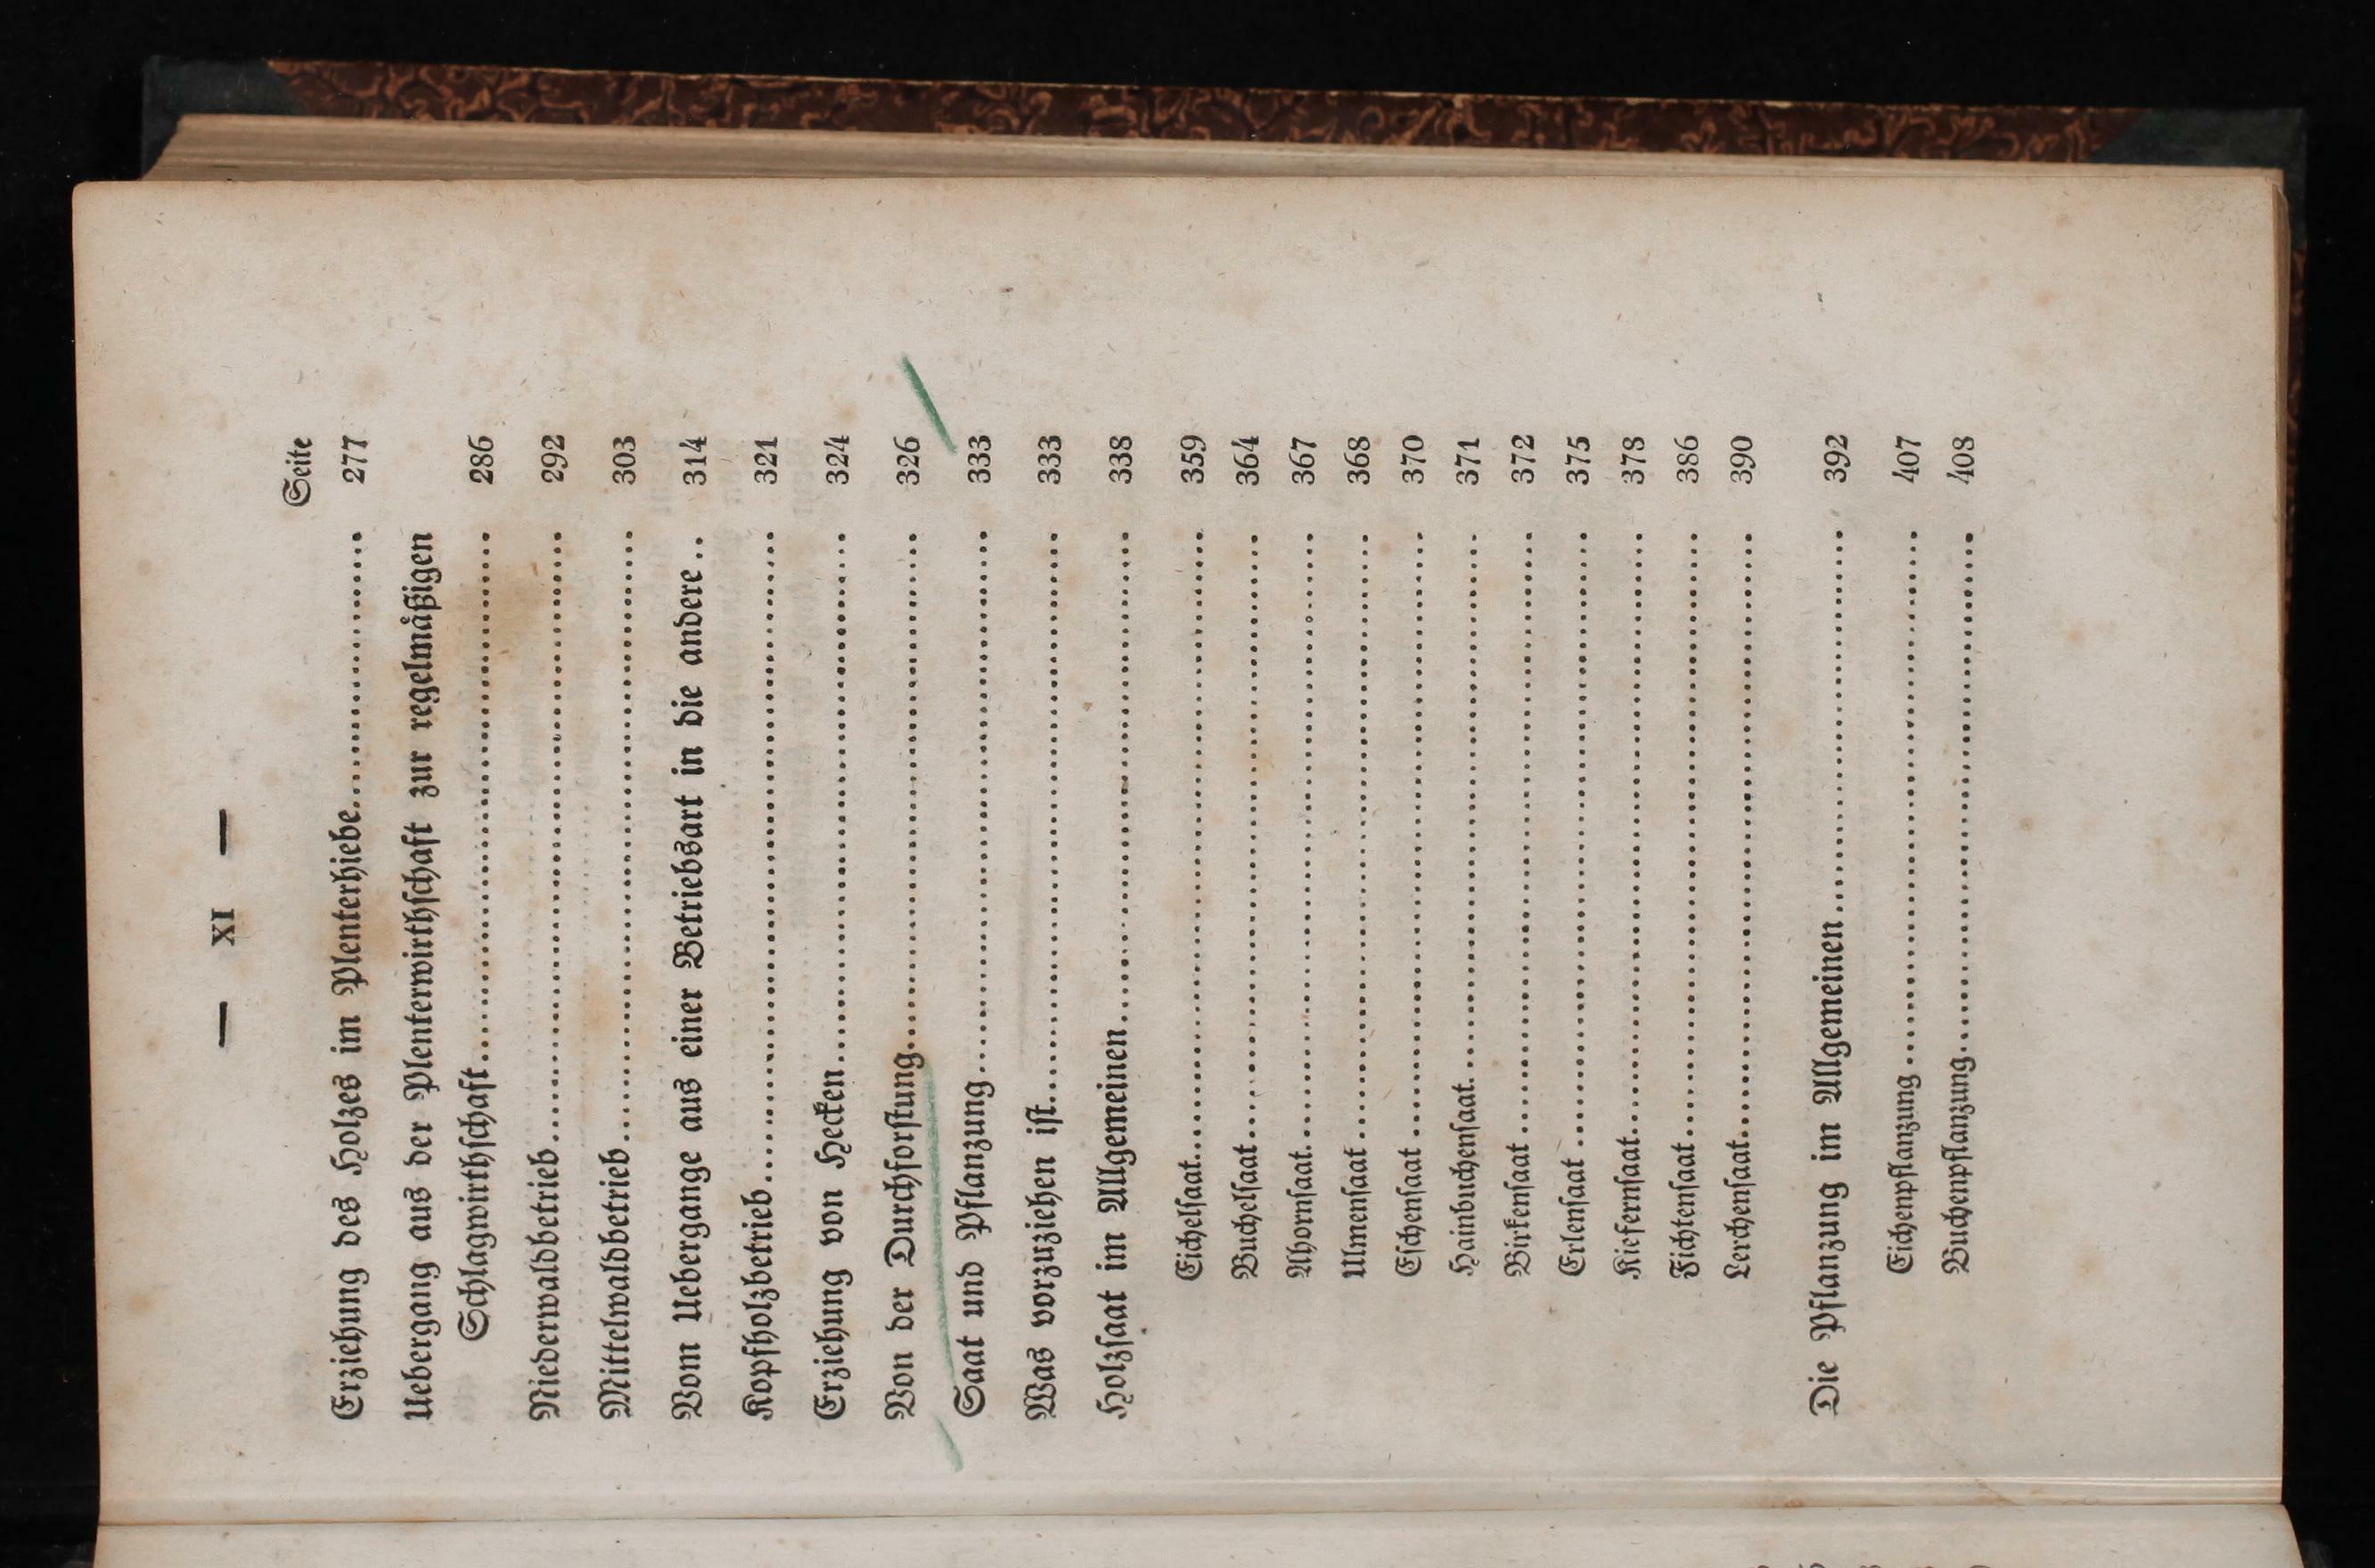 — XI —
Seite
Erziehung des Holzes im Plenterhiebe.......................... 277
Uebergang aus der Plenterwirthschaft zur regelmäßigen
Schlagwirthschaft.................................................. 286
Niederwaldbetrieb.......................................................... 292
Mittelwaldbetrieb.......................................................... 303
Vom Uebergange aus einer Betriebsart in die andere... 314
Kopfholzbetrieb............................................................. 321
Erziehung von Hecken.................................................. 324
Von der Durchforstung................................................ 326
Saat und Pflanzung.................................................... 333
Was vorzuziehen ist..................................................... 333
Holzsaat im Allgemeinen............................................. 338
Eichelsaat......................................................... 359
Buchelsaat........................................................ 364
Ahornsaat......................................................... 367
Ulmensaat........................................................ 368
Eschensaat........................................................ 370
Hainbuchensaat................................................. 371
Birkensaat........................................................ 372
Erlensaat.......................................................... 375
Kiefernsaat....................................................... 378
Fichtensaat....................................................... 386
Lerchensaat...................................................... 390
Die Pflanzung im Allgemeinen.................................... 392
Eichenpflanzung................................................. 407
Buchenpflanzung................................................ 408